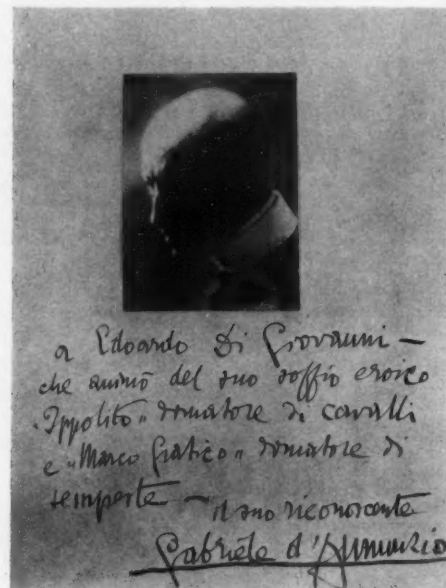 a Edoardo Di Giovanni —
che animò del suo soffio eroico
"Ippolito" domatore di cavalli
e "Marco Gratico" domatore di
tempeste —
il suo riconoscente
Gabriele d'Annunzio